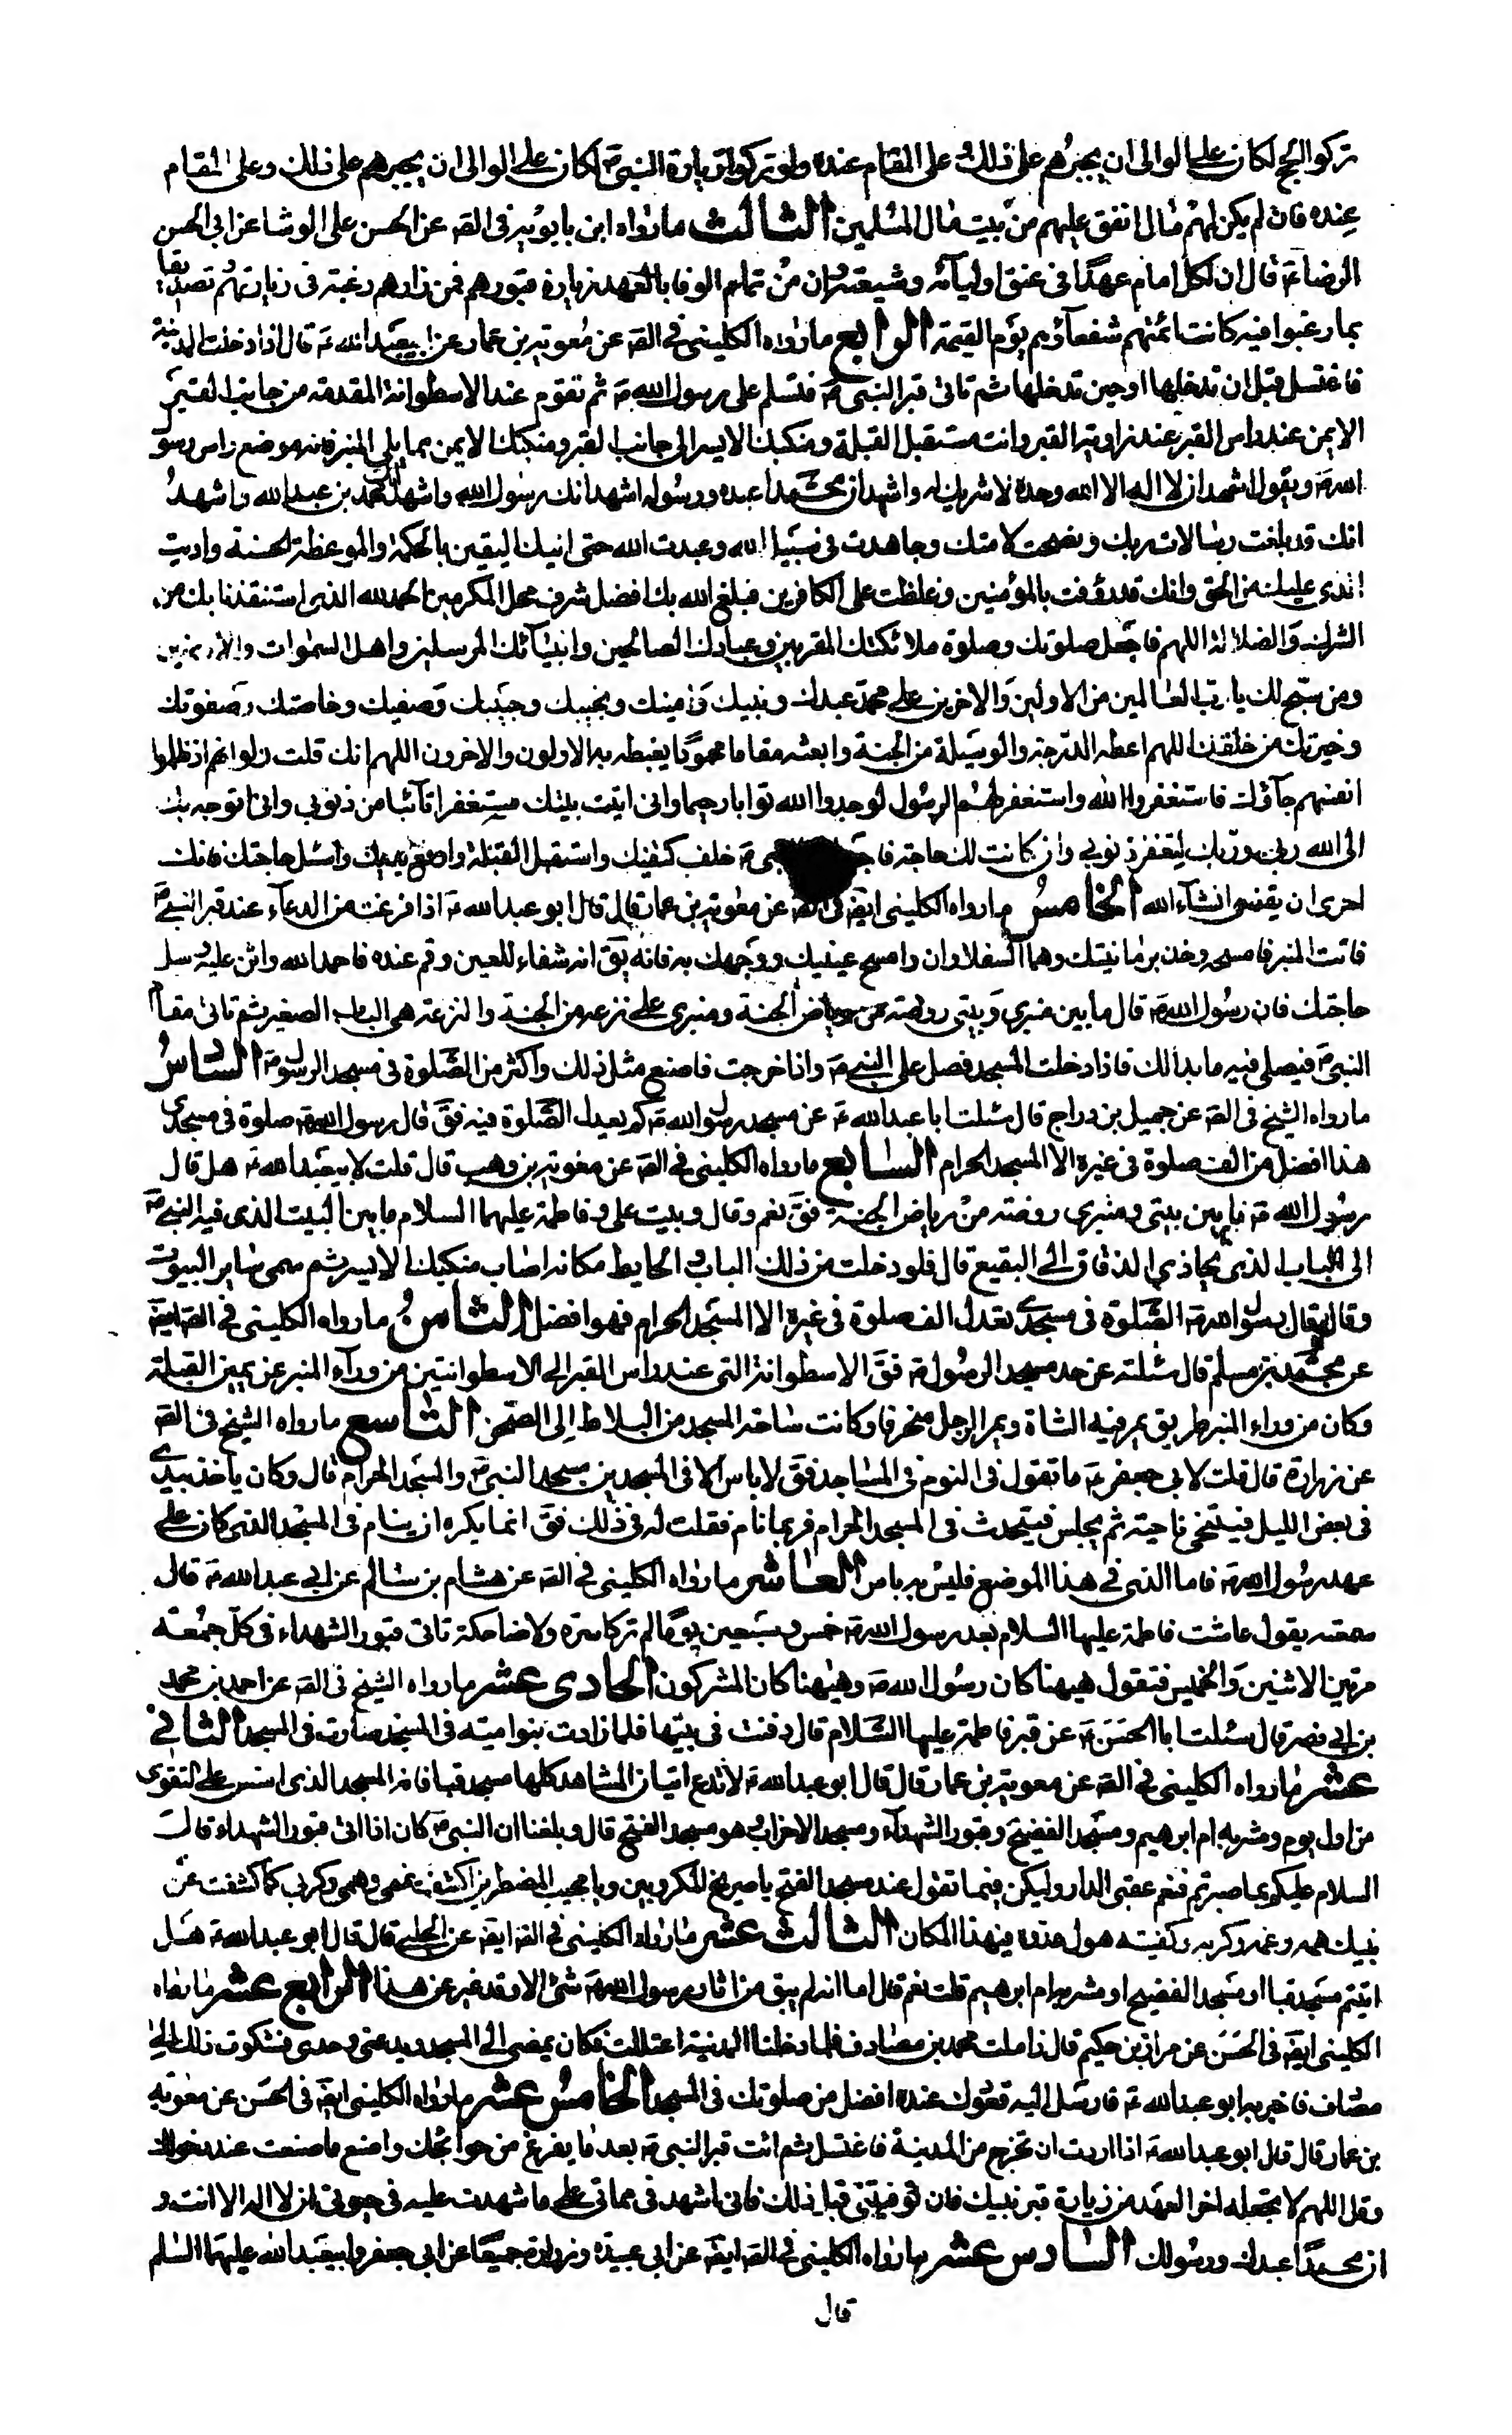 تركوا الحج لكان على الوالى ان يجبرهم على ذلك و على المقام عنده ولو تركوا زيارة النبى ص لكان على الوالى ان يجبرهم على ذلك وعلى المقام
عنده فان لم يكن لهم مال انفق عليهم من بيت مال المسلمين الثالث ما رواه ابن بابويه فى القه عن الحسن على الوشا عن ابى الحسن
الرضا ع قال ان لكل امام عهدا فى عنق اوليآئه وشيعته وان من تمام الوفا بالعهد زيارة قبورهم فمن زارهم رغبة فى زيارتهم تصديقا
بما رغبوا فيه كانت ائمتهم شفعآؤهم يوم القيمة الرابع ما رواه الكلينى فى القه عن معوية بن عمار عن ابيعبد الله ع قال اذا دخلت المدينة
فاغتسل قبل ان تدخلها او حين تدخلها ثم تاتى قبر النبى ص فتسلم على رسول الله ص ثم تقوم عند الاسطوانة المقدمة من جانب القبر
الايمن عند راس القبر عند زاوية القبر وانت مستقبل القبلة ومنكبك الايسر الى جانب القبر ومنكبك الايمن مما يلى المنبر فانه موضع راس رسو
الله ص ويقول اشهد ان لا اله الا الله وحده لا شريك له واشهد ان محمدا عبده ورسوله اشهد انك رسول الله واشهد انك محمد بن عبد الله واشهد
انك قد بلغت رسالات ربك ونصحت لامتك وجاهدت فى سبيل الله وعبدت الله حتى اتيك اليقين بالحكمة والموعظة الحسنة واديت
الذى عليك من الحق وانك قد رؤفت بالمؤمنين وغلظت على الكافرين فبلغ الله بك افضل شرف محل المكرمين الحمد لله الذى استنقذنا بك من
الشرك والضلالة اللهم فاجعل صلوتك وصلوة ملائكتك المقربين وعبادك الصالحين وانبيآئك المرسلين واهل السموات والارضين
ومن سبح لك يا رب العالمين من الاولين والاخرين على محمد عبدك ونبيك وامينك ونجيبك وحبيبك وصفيك وخاصتك وصفوتك
وخيرتك من خلقك اللهم اعطه الدرجة والوسيلة من الجنة وابعثه مقاما محمودا يغبطه به الاولون والاخرون اللهم انك قلت ولو انهم اذ ظلموا
انفسهم جآؤك فاستغفروا الله واستغفر لهم الرسول لوجدوا الله توابا رحيما وانى اتيت بليتك مستغفرا تآئبا من ذنوبى وانى اتوجه بك
الى الله ربى وربك ليغفر ذنوبى وان كانت لك حاجة ص خلف كتفيك واستقبل القبلة وارفع يديك واسئل حاجتك فانك
احرى ان يقضى انشآء الله الخامس ما رواه الكلينى ايضه فى القه عن معوية بن عمار قال قال ابو عبد الله ع اذا فرغت من الدعآء عند قبر النبى ص
فائت المنبر فامسحه وخذ برمانتيك وهما السفلاوان وامسح عينيك ووجهك به فانه يق انه شفاء للعين وقم عنده فاحمد الله واثن عليه وسل
حاجتك فان رسول الله ص قال ما بين منبرى وبيتى روضة من رياض الجنة ومنبرى على نزعة من الجنة والنزعة هى الباب الصغير ثم تاتى مقام
النبى ص فيصلى فيه ما بدا لك فاذا دخلت المسجد فصل على النبى ص واذا خرجت فاصنع مثل ذلك واكثر من الصلوة فى مسجد الرسول ص السادس
ما رواه الشيخ فى القه عن جميل بن دراج قال سئلت ابا عبد الله ع عن مسجد رسول الله ص كم يعدل الصلوة فيه فق قال رسول الله ص صلوة فى مسجدى
هذا افضل من الف صلوة فى غيره الا المسجد الحرام السابع ما رواه الكلينى فى القه عن معوية بن وهب قال قلت لابيعبد الله ع هل قال
رسول الله ص ما بين بيتى ومنبرى روضة من رياض الجنة فق نعم وقال وبيت على وفاطمة عليهما السلام ما بين البيت الذى فيه النبى ص
الى الباب الذى يحاذي الزقاق الى البقيع قال فلو دخلت من ذلك الباب والحايط مكانه اصاب منكبك الايسر ثم سمى ساير البيوت
وقال قال رسول الله ص الصلوة فى مسجدى تعدل الف صلوة فى غيره الا المسجد الحرام فهو افضل الثامن ما رواه الكلينى فى القه ايضه
عن محمد بن مسلم قال سئلته عن حد مسجد الرسول ص فق الاسطوانة التى عند راس القبر الى الاسطوانتين من ورآء المنبر عن يمين القبلة
وكان من وراء المنبر طريق يمر فيه الشاة ويمر الرجل منحرفا وكانت ساحة المسجد من البلاط الى الصحن التاسع ما رواه الشيخ فى القه
عن زرارة قال قلت لابى جعفر ع ما تقول فى النوم فى المساجد فق لا باس الا فى المسجدين مسجد النبى ص والمسجد الحرام قال وكان ياخذ بيدى
فى بعض الليل فيتنحى ناحية ثم يجلس فيتحدث فى المسجد الحرام فربما نام فقلت له فى ذلك فق انما يكره ان ينام فى المسجد الذى كان على
عهد رسول الله ص فاما الذى فى هذا الموضع فليس به باس العاشر ما رواه الكلينى فى القه عن هشام بن سالم عن ابى عبد الله ع قال
سمعته يقول عاشت فاطمة عليها السلام بعد رسول الله ص خمس وسبعين يوما لم تر كاشرة ولا ضاحكة تاتى قبور الشهداء فى كل جمعة
مرتين الاثنين والخميس فتقول هيهنا كان رسول الله ص وهيهنا كان المشركون الحادى عشر ما رواه الشيخ فى القه عن احمد بن محمد
بن ابى نصر قال سئلت ابا الحسن ع عن قبر فاطمة عليها السلام قال دفنت فى بيتها فلما زادت بنو امية فى المسجد صارت فى المسجد الثانى
عشر ما رواه الكلينى فى القه عن معوية بن عمار قال قال ابو عبد الله ع لا تدع اتيان المشاهد كلها مسجد قبا فانه المسجد الذى اسس على التقوى
من اول يوم ومشربة ام ابرهيم ومسجد الفضيخ وقبور الشهدآء ومسجد الاحزاب وهو مسجد الفتح قال وبلغنا ان النبى ص كان اذا اتى قبور الشهداء قال
السلام عليكم بما صبرتم فنعم عقبى الدار وليكن فيما تقول عند مسجد الفتح يا صريخ المكروبين ويا مجيب المضطرين اكشف غمى وهمى وكربى كما كشفت عن
نبيك همه وغمه وكربه وكفيته هول عدوه فى هذا المكان الثالث عشر ما رواه الكلينى فى القه ايضه عن الحلبى قال قال ابو عبد الله ع هل
اتيتم مسجد قبا او مسجد الفضيخ او مشربة ام ابرهيم قلت نعم قال اما انه لم يبق من اثار رسول الله ص شئ الا وقد غير عن هذا الرابع عشر ما رواه
الكلينى ايضه فى الحسن عن مرازم بن حكيم قال زاملت محمد بن مصادف فلما دخلنا المدينة اعتللت فكان يمضى الى المسجد ويدعنى وحدى فشكوت ذلك الى
مصادف فاخبر به ابو عبد الله ع فارسل اليه قعودك عنده افضل من صلوتك فى المسجد الخامس عشر ما رواه الكلينى ايضه فى الحسن عن معوية
بن عمار قال قال ابو عبد الله ع اذا اردت ان تخرج من المدينة فاغتسل ثم ائت قبر النبى ص بعد ما يفرغ من حوائجك واصنع ما صنعت عند دخولك
وقل اللهم لا تجعله اخر العهد من زيارة قبر نبيك فان توفيتنى قبل ذلك فانى اشهد فى مماتى على ما شهدت عليه فى حيوتى ان لا اله الا انت و
ان محمدا عبدك ورسولك السادس عشر ما رواه الكلينى فى القه ايضه عن ابى عبيدة وزرارة جميعا عن ابى جعفر وابيعبد الله عليهما السلم
قال